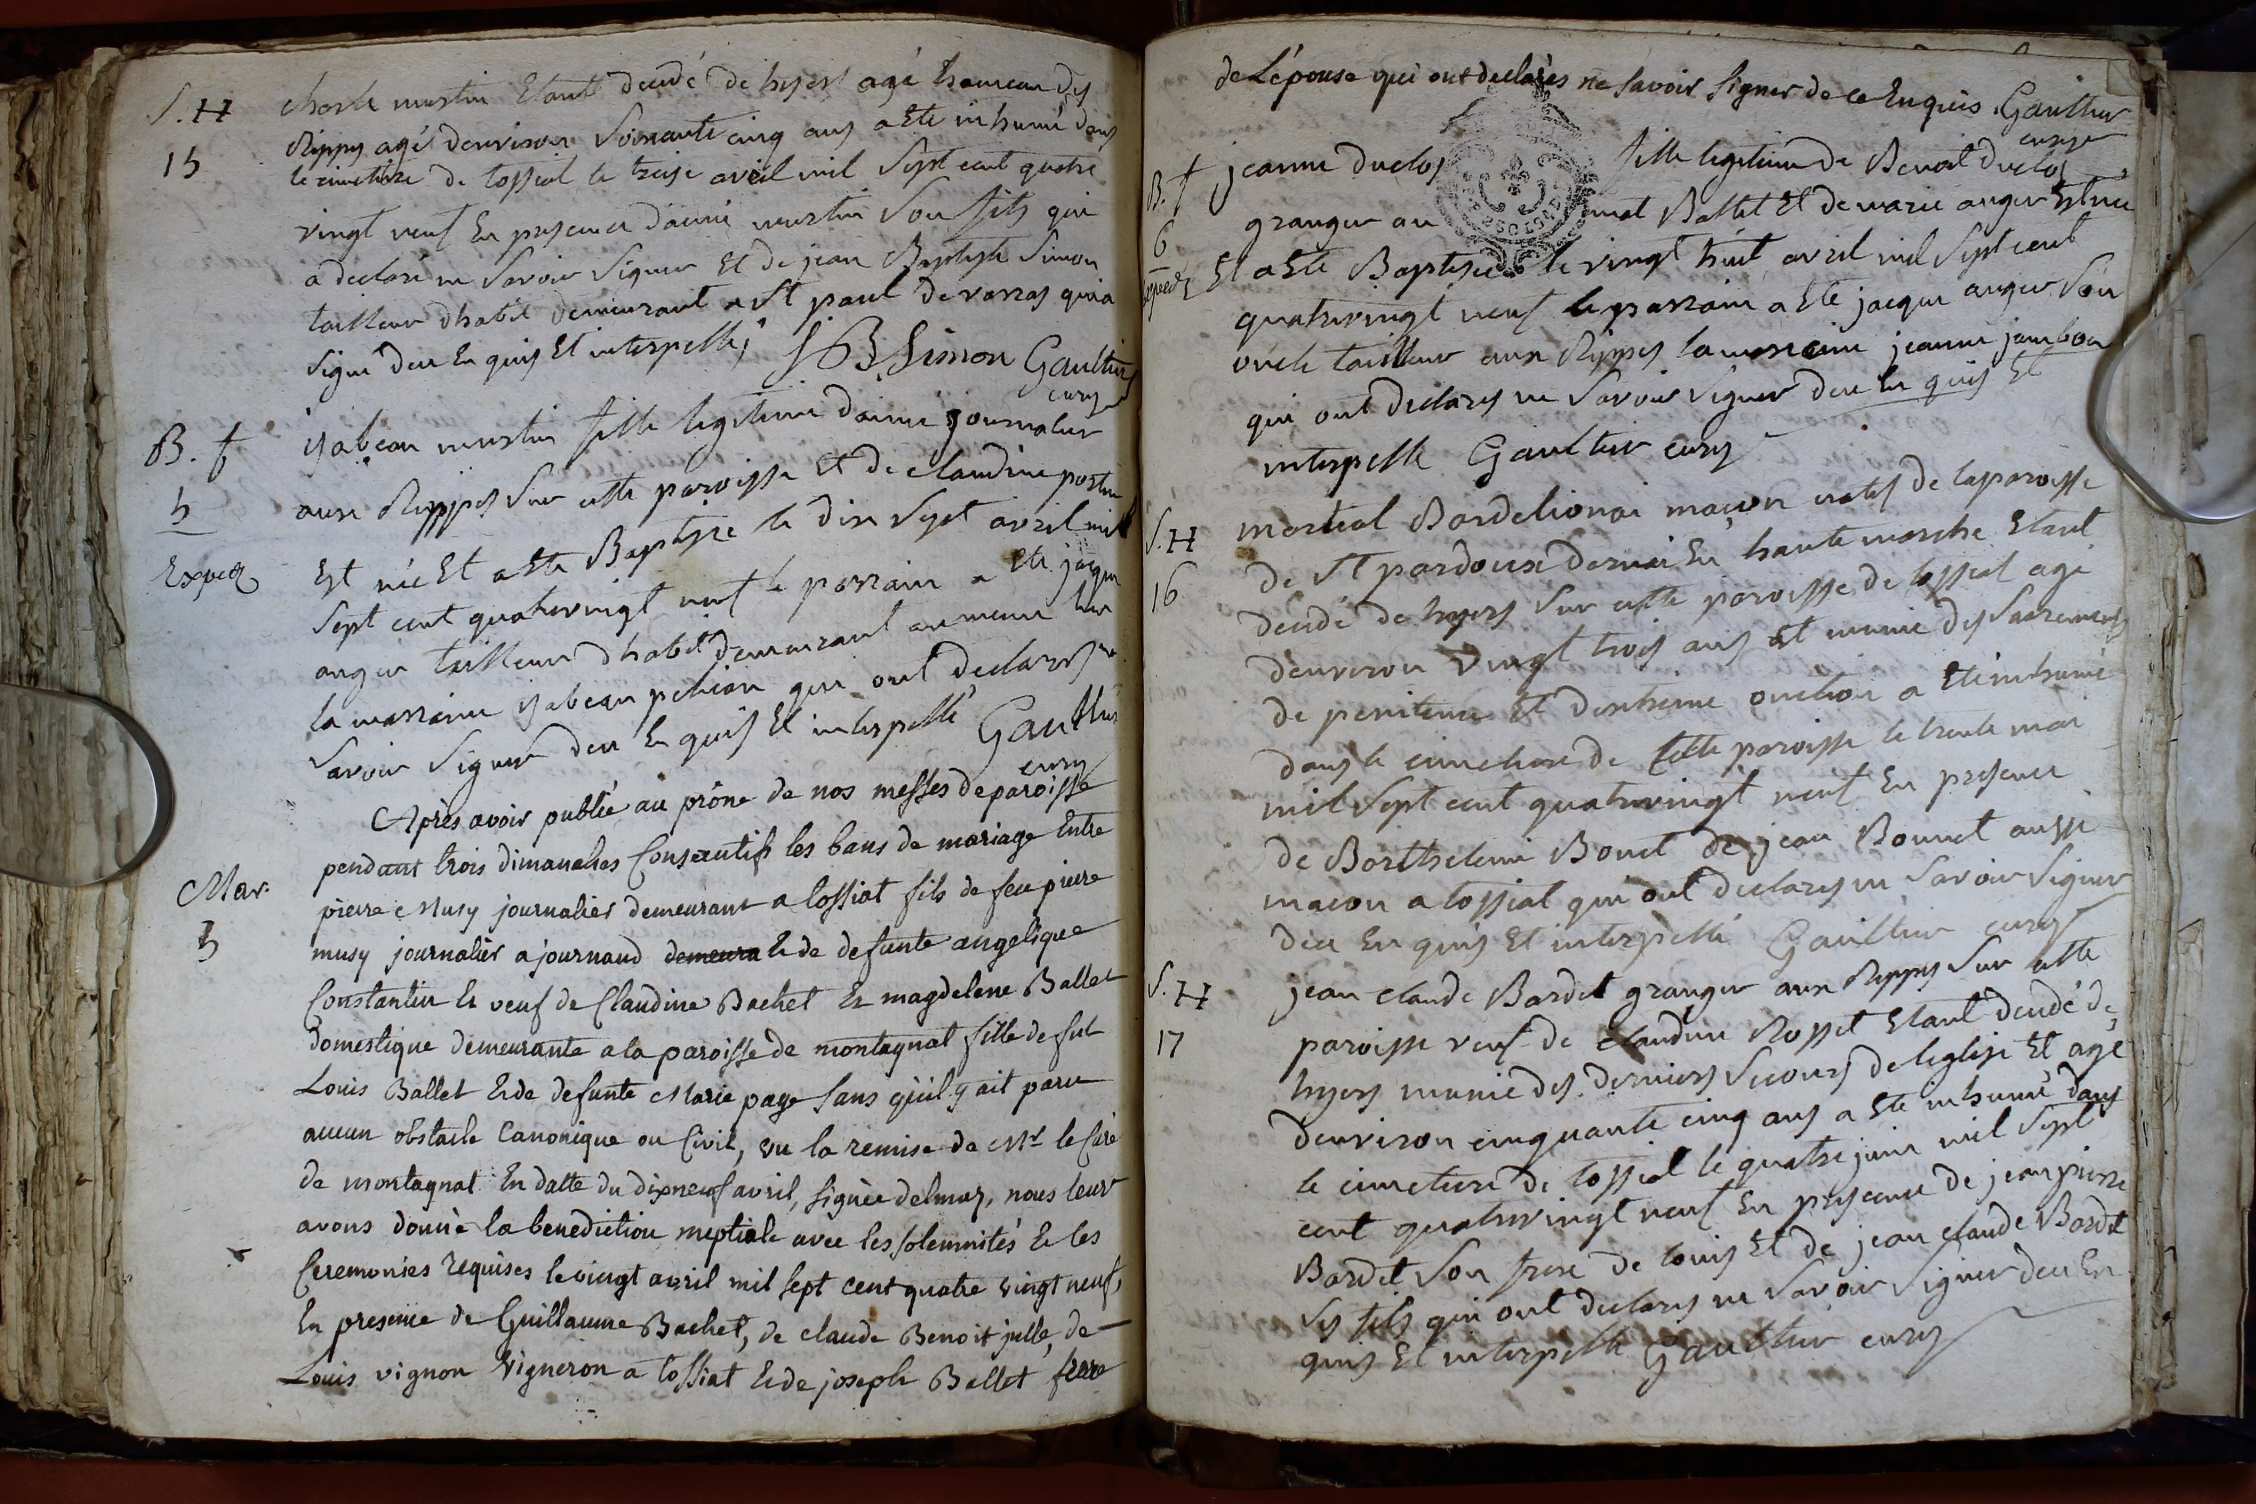 S. H
15
charle mustin Etant decedé de hyers agé hameau des
Rippes agé denviron soixante cinq ans a Ete inhumé dans
le cimetiere de tossiat le treise avril mil sept cent quatre
vingt neuf En presence daimé mustin son fils qui
a declaré ne savoir signer Et de jean Baptiste Simon
tailleur dhabit demeurant a St paul de varras qui a
signé deu En quis Et interpellé, JB Simon Gaultier
curé
B. f
5
Exped
ysabeau mustin fille legitime daimé journalier
aux Rippes sur cette paroisse Et de claudine
Est née Et a Ete Baptisée le dix sept avril mil
sept cent quatrevingt neuf le parrain a Ete jacque
anger tailleur dhabit demeurant au meme lieu
la marraine ysabeau qui ont declarés ne
savoir signer deu En quis Et interpellé Gaultier
curé
Mar.
5
Après avoir publié au prône de nos messes de paroisse
pendant trois dimanches Consecutifs les bans de mariage Entre
pierre Musy journalier demeurant a tossiat fils de feu pierre
musy journalier a journaud demeura & de defunte angelique
Constantin & veuf de Claudine Bachet & magdelene Ballet
domestique demeurante a la paroisse de montagnat fille de fut
Louis Ballet & de defunte Marie page sans qu'il y ait paru
aucun obstacle Canonique ou Civil, vu la remise de Mr le Curé
de montagnat En datte du dixneuf avril, signée delmas, nous leur
avons donné la benediction nuptiale avec les solemnités & les
Ceremonies requises le vingt avril mil sept cent quatre vingt neuf,
En presence de Guillaume Bachet, de claude Benoit julle, de
Louis vignon vigneron a tossiat & de joseph Ballet frere
de L'épouse qui ont declarés ne savoir signer de ce Enquis. Gaultier
curé
B. f
6
Exped
jeanne duclos fille legitime de Benoit duclos
granger au mat Ballet Et de marie anger Est née
Et a Ete Baptisée le vingt huit avril mil sept cent
quatrevingt neuf le parrain a Ete jacque anger son
oncle tailleur aux Rippes la marraine jeanne jambon
qui ont declarés ne savoir signer deu En quis Et
interpellé Gaultier curé
S. H
16
martial Bardelionai maçon natif de la paroisse
de St pardoux dernai En haute marche Etant
decedé de hyers sur cette paroisse de tossiat agé
denviron vingt trois ans Et munie des sacrements
de penitence Et dextreme onction a Ete inhumé
dans le cimetiere de Cette paroisse le trente mai
mil sept cent quatrevingt neuf En presence
de Barthelemi Bonet de jean Bonnet aussi
macon a tossiat qui ont declarés ne savoir signer
deu En quis Et interpellé Gaultier curé
S. H
17
jean claude Bardet granger aux Rippes sur cette
paroisse veuf de claudine Rosset Etant decedé de
hyers munie des derniers secours de leglise Et agé
denviron cinquante cinq ans a Ete inhumé dans
le cimetiere de tossiat le quatre juin mil sept
cent quatrevingt neuf En presence de jean pierre
Bardet son frere de louis Et de jean claude Bardet
ses fils qui ont declarés ne savoir signer deu En
quis Et interpellé Gaultier curé